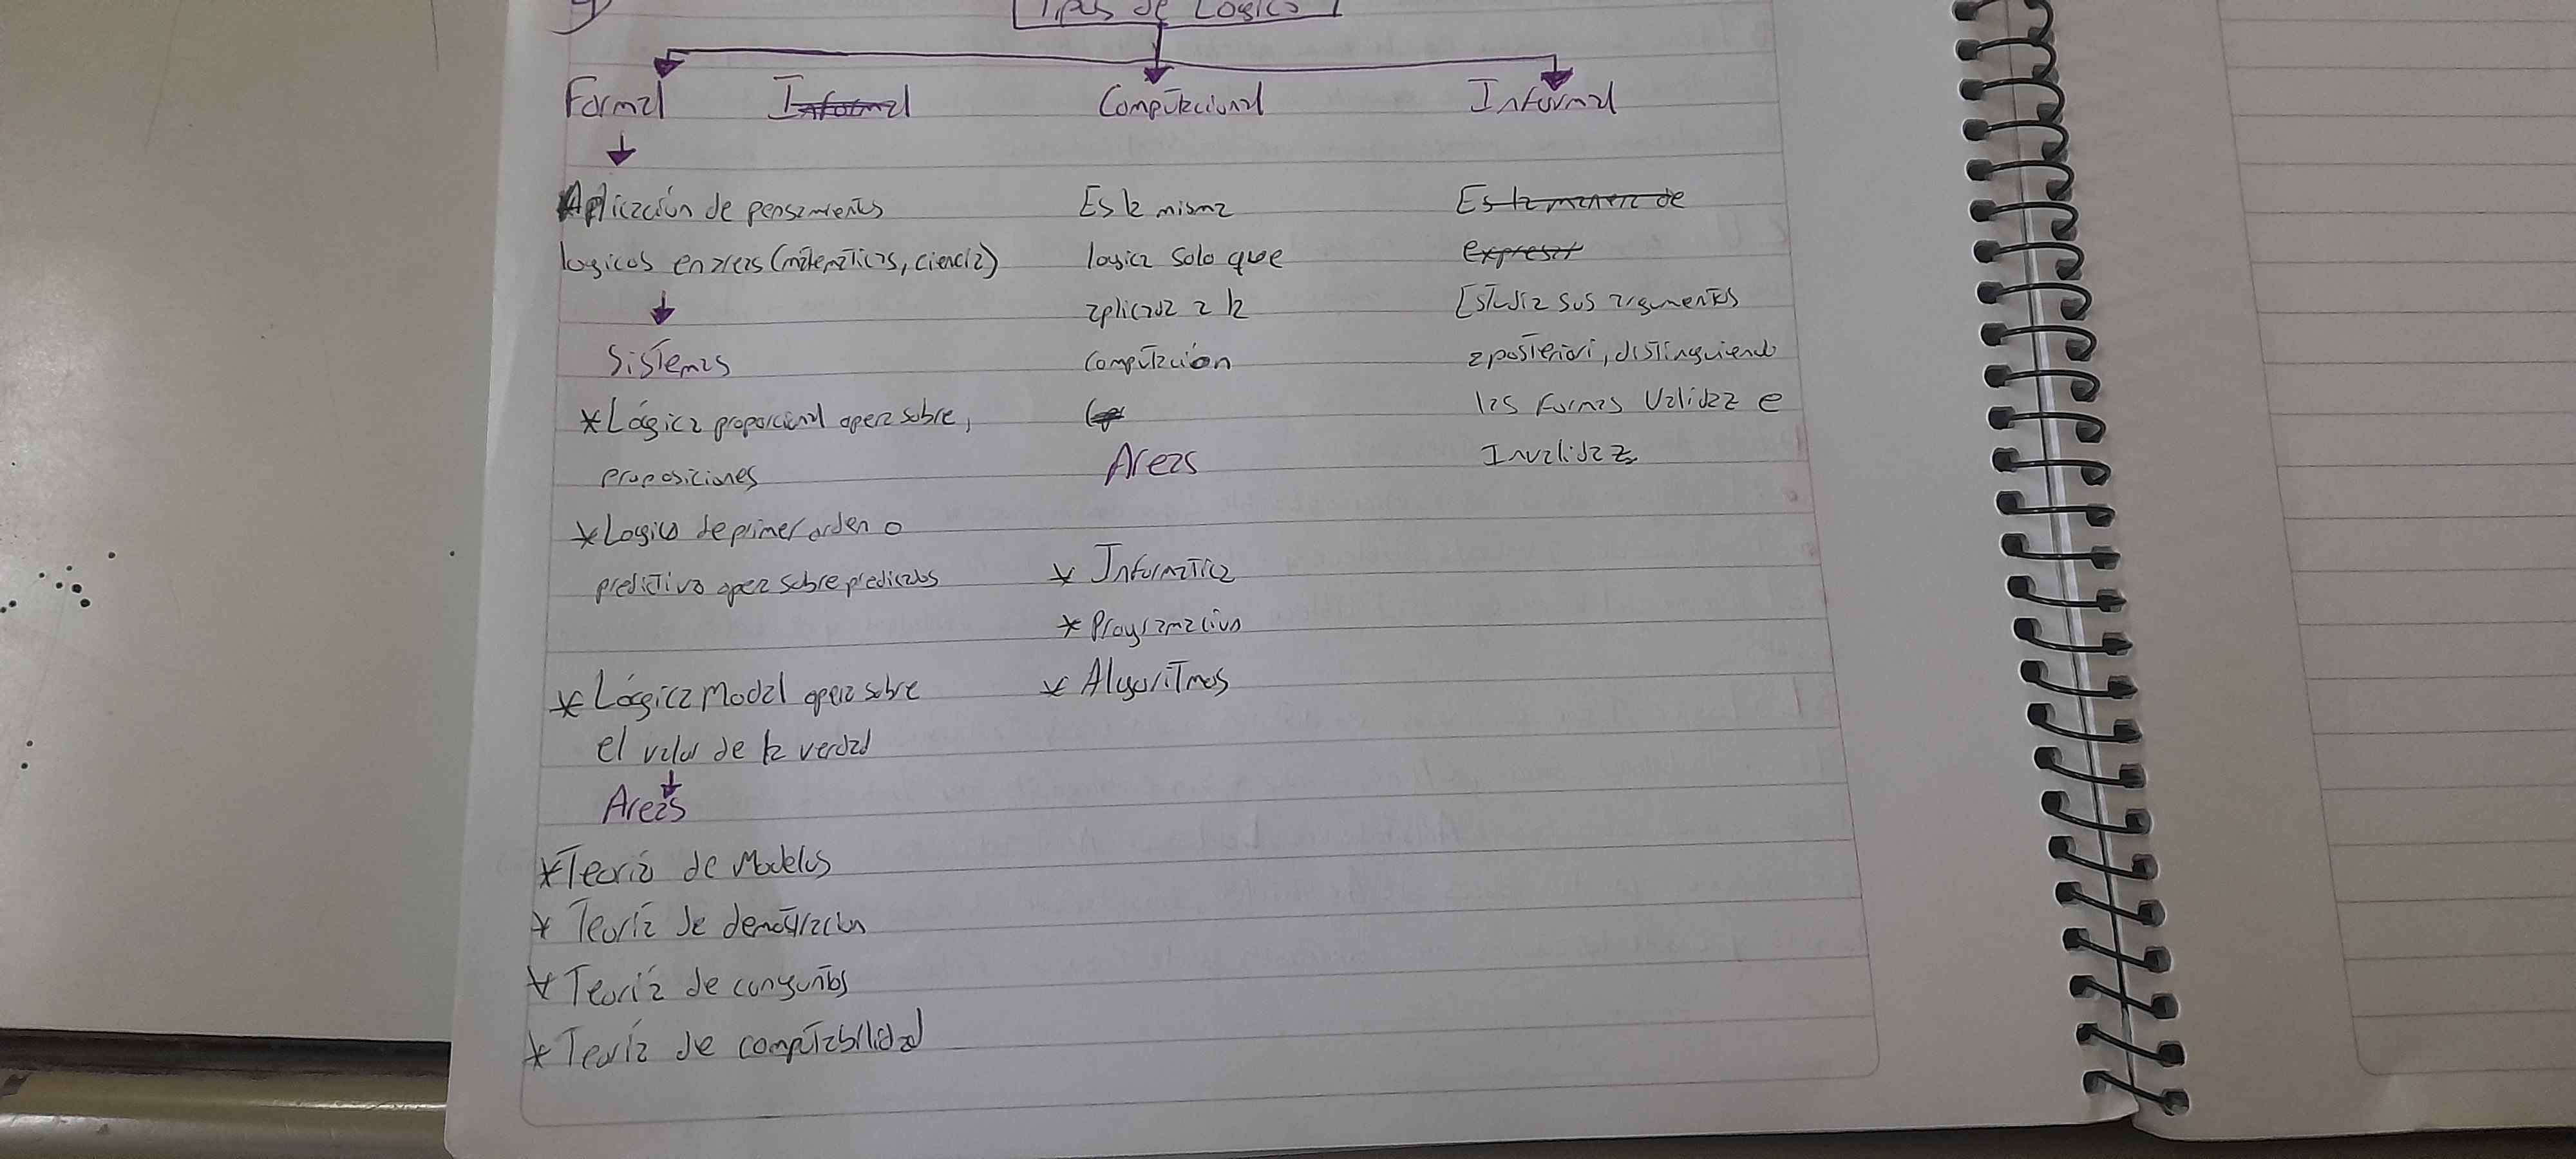 Tipos de Logica
Formal Informal Computacional Informal
Aplicación de pensamientos
logicos en areas (matematicas, ciencia)
Sistemas
* Lógica proporcional opera sobre,
proposiciones
* Logico de primer orden o
predictivo opera sobre predicados
* Lógica Modal opera sobre
el valor de la verdad
Areas
* Teoria de Modelos
* Teoría de demostracion
* Teoría de conguntos
* Teoría de computabilidad
Es la misma
logica solo que
aplicada a la
computación
Areas
* Informatica
* Programacion
* Algoritmos
Es la manera de
expresar
Estudia sus argumentos
aposteriori, distinguiendo
las formas Validaz e
Invalidaz